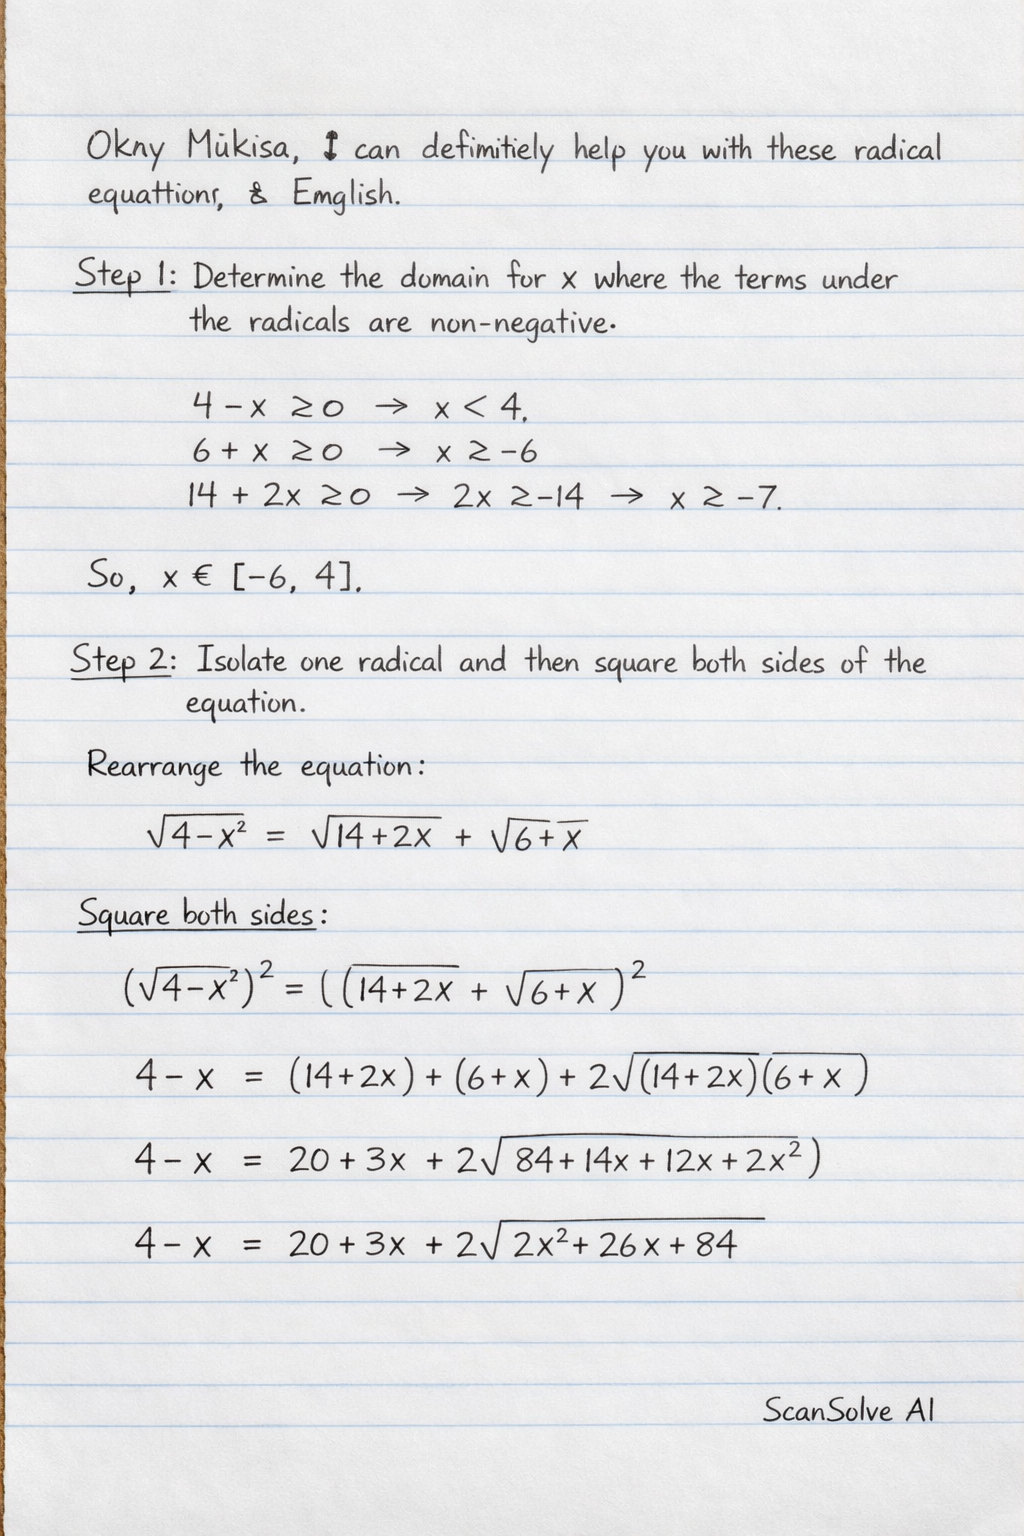 Okny Mükisa, I can defimitiely help you with these radical
equattionſ, & Emglish.
Step 1: Determine the domain for x where the terms under
the radicals are non-negative.
4 - x ≥ 0 → x < 4.
6 + x ≥ 0 → x ≥ -6
14 + 2x ≥ 0 → 2x ≥ -14 → x ≥ -7.
So, x € [-6, 4].
Step 2: Isolate one radical and then square both sides of the
equation.
Rearrange the equation:
√4-x² = √14+2x + √6+x
Square both sides:
(√4-x²)² = ((14+2x + √6+x )²
4 - x = (14+2x) + (6+x) + 2√(14+2x)(6+x )
4 - x = 20 + 3x + 2√84 + 14x + 12x + 2x²)
4 - x = 20 + 3x + 2√2x² + 26x + 84
ScanSolve AI